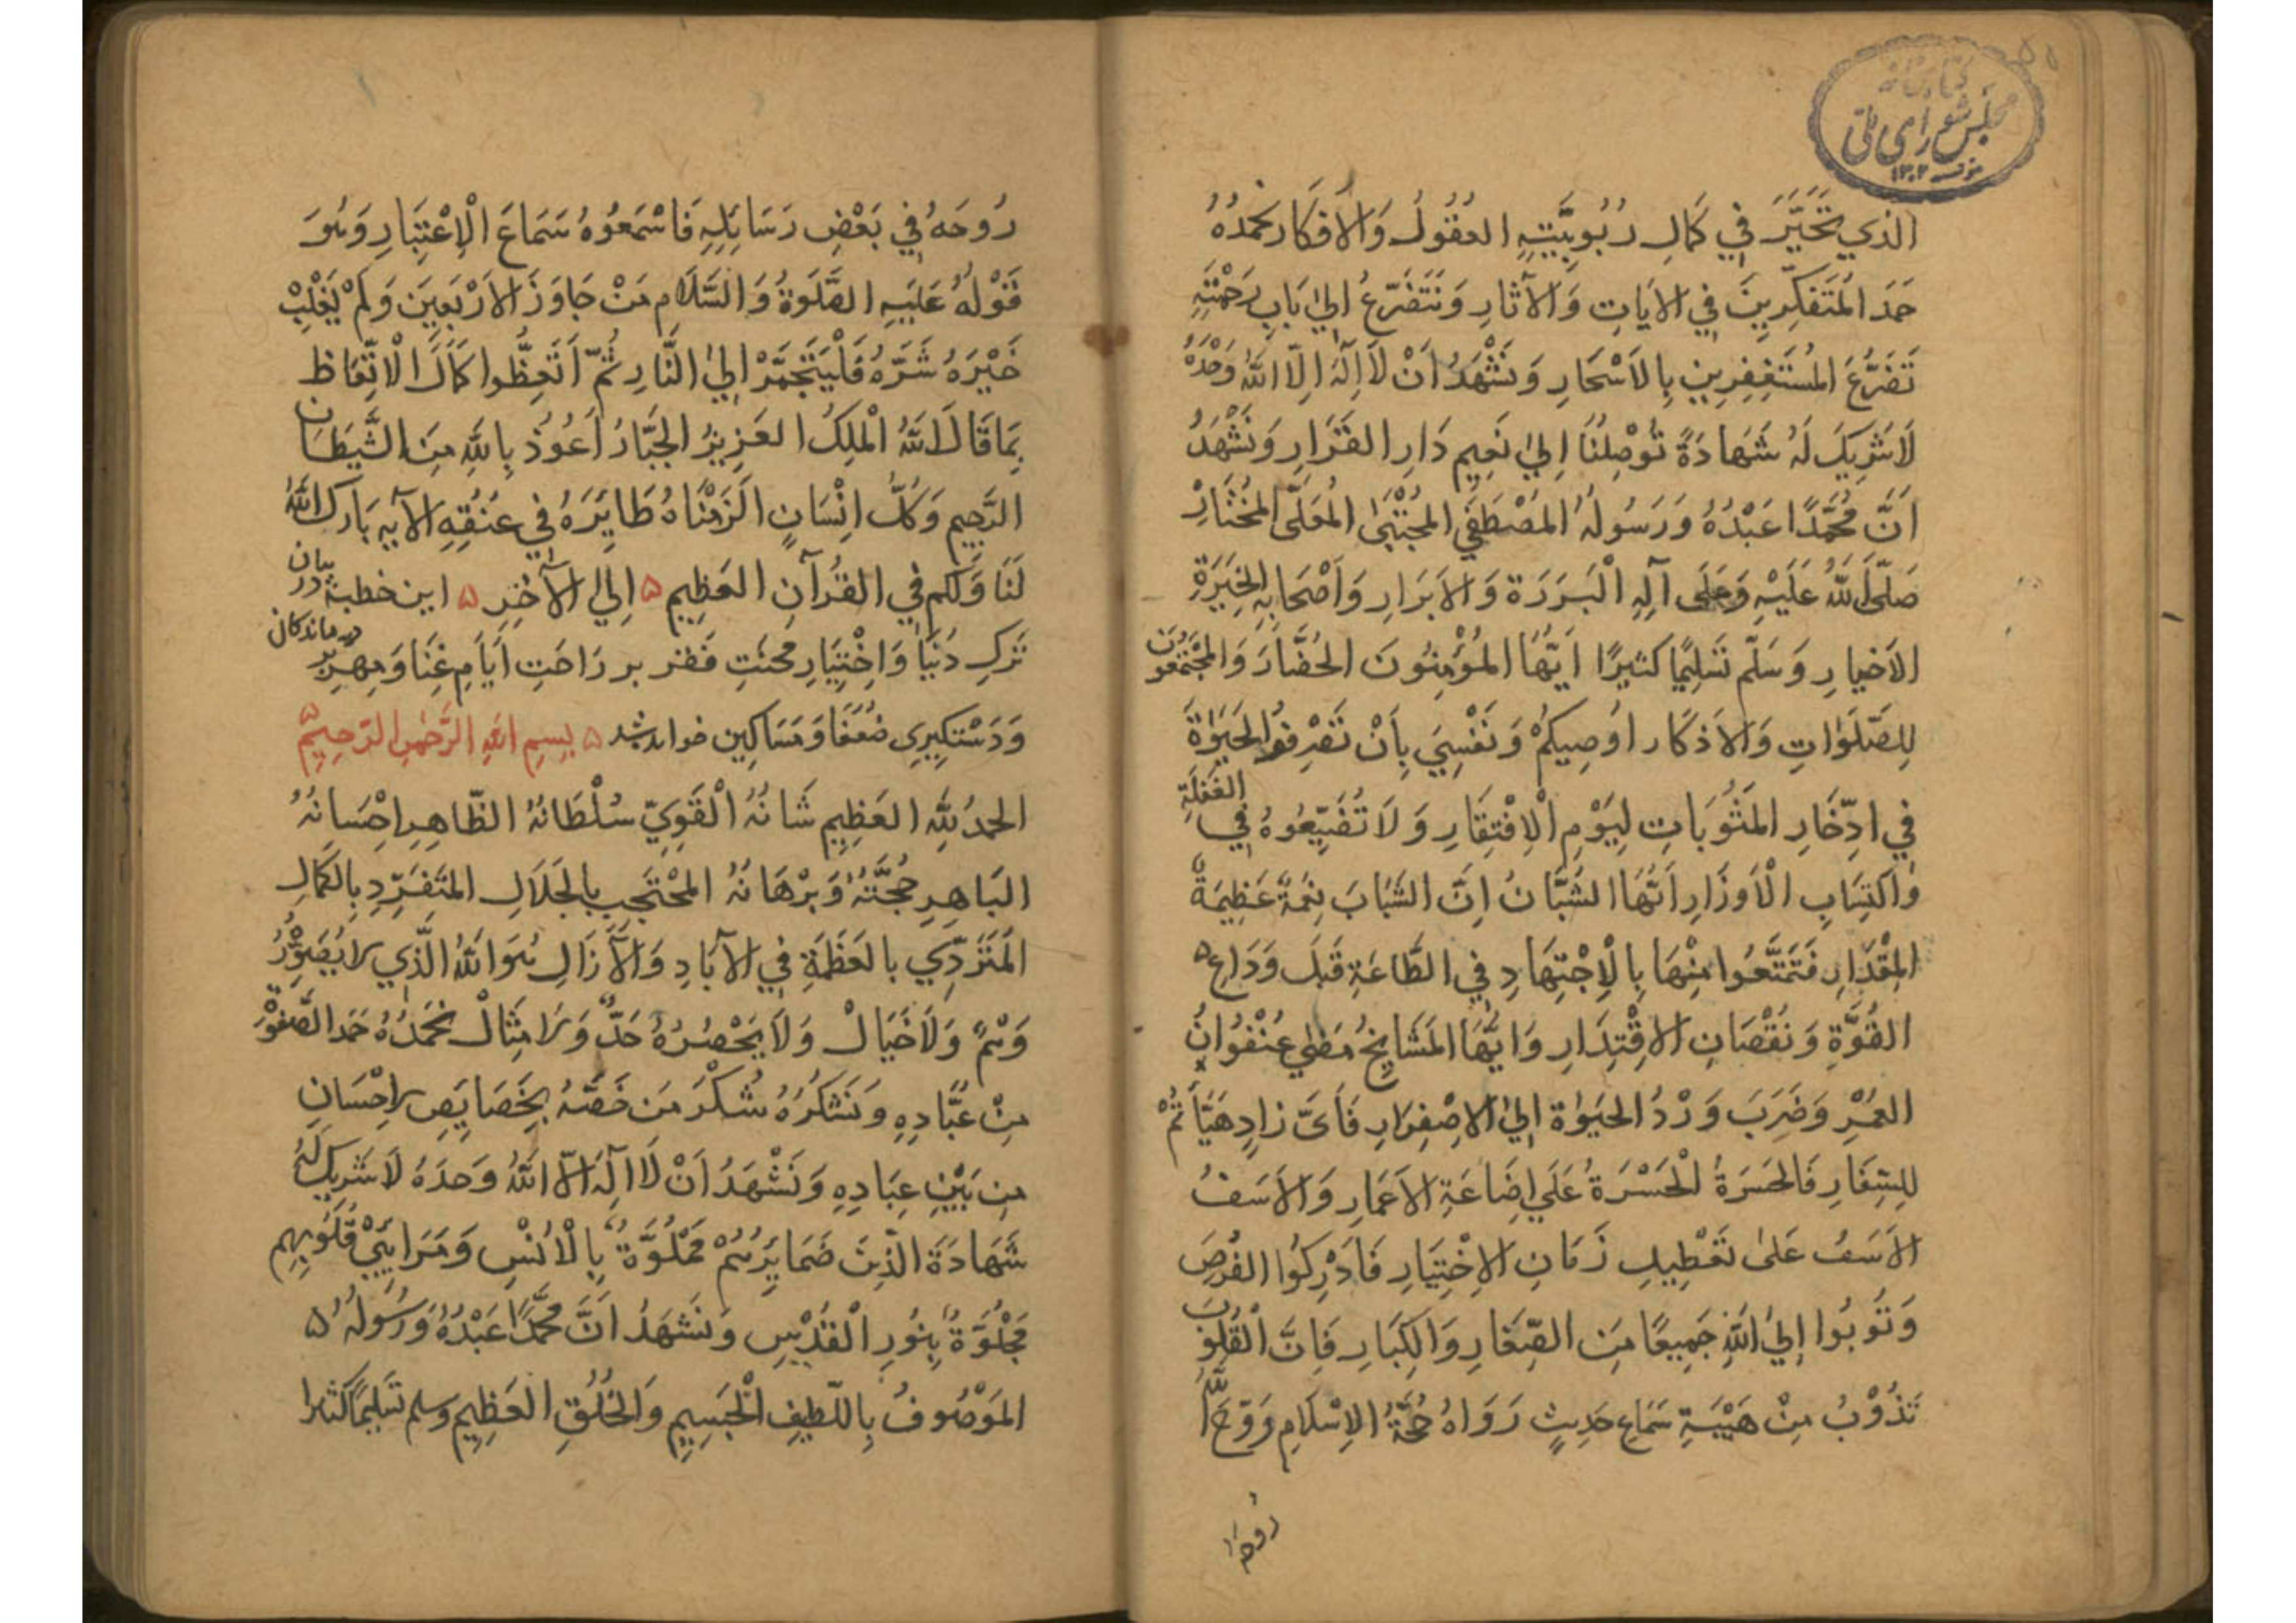 کتابخانه
مجلس شورای ملی
۱۳۰۲
الذي تَحَيَّرَ فِي كَمَالِ رُبُوبِيَّتِهِ العُقُولُ وَالاَفكَار نحمدُهُ
حَمدَ المُتَفكِّرِينَ فِي الاٰيَاتِ وَالآثارِ وَنَتَضَرّعُ اِلىٰ بَابِ رَحمَتِهِ
تَضَرُّعَ المُستَغفِرِينِ بِالاَسْحَارِ وَنَشْهَدُ اَنْ لَا اِلٰهَ اِلّا اللهُ وَحْدَهُ
لَاشَرِيكَ لَهُ شَهَادَةً تُوْصِلُنَا اِلىٰ نَعِيمِ دَارِ القَرَارِ وَنَشْهَدُ
اَنَّ مُحَمَّدًا عَبْدُهُ وَرَسُولُهُ المُصْطَفَي المُجتَبَىٰ المُعَلَّى المُختَارْ
صَلَّى اللهُ عَلَيْهِ وَعَلَى آلِهِ الْبَرَرَةِ وَالاَبرَارِ وَاَصْحَابِهِ الخِيَرَةِ
الاَخيارِ وَسَلَّم تَسلِيمًا كَثيرًا اَيّهَا المُؤْمِنُونَ الحُضَّارَ وَالمُجْتَمعُونَ
لِلصَّلَوٰاتِ وَالاَذكَار اُوصِيكُمْ وَنَفْسِيَ بِاَنْ تَصْرِفُوا الحَيَوٰةَ
فِي ادِّخَارِ المَثُوبَاتِ لِيَوْمِ الْاِفْتِقَارِ وَلَا تُضَيِّعُوهُ فِي الغَفلَةِ
وَاكتِسَابِ الْاَوزَارِ اَيُّهَا الشُبَّانُ اِنَّ الشَّبَابَ نِعمَةٌ عَظِيمَةٌ
المِقْدَارِ فَتَمَتَّعُوا مِنْهَا بِالْاِجْتِهَادِ فِي الطَّاعَةِ قَبلَ وَدَاعِ ۵
القُوَّةِ وَنُقْصَانِ الاِقْتِدَارِ وَاَيُّهَا المَشَايِخُ مَضٰى عُنْفُوَانُ
العُمْرِ وَضَرَبَ وَرْدُ الحَيَوٰةِ اِلىٰ الاِصْفِرَارِ فَاَىَّ زادٍ هَيَّأتُمْ
لِلسَّفَارِ فَالحَسرَةُ الْحَسْرَةُ عَلَي اِضَاعَةِ الاَعمَارِ وَالاَسَفُ
الاَسَفُ عَلىٰ تَعْطِيلِ زَمَانِ الاِخْتِيَارِ فَادْرِكُوا الفُرَصَ
وَتُوبُوا اِلىٰ اللهِ جَمِيعًا مِنَ الصِّغَارِ وَالكِبَارِ فَاِنَّ الْقُلُوبَ
تَذُوْبُ مِنْ هَيْبَةِ سَمَاعِ حَدِيثٍ رَوَاهُ حُجَّةُ الاِسْلَامِ رَوَّحَ اللهُ
رُوحَهُ
رُوحَهُ فِي بَعْضِ رَسَايِلِهِ فَاسْمَعُوهُ سَمَاعَ الْاِعْتِبَارِ وَهُوَ
قَوْلُهُ عَلَيهِ الصَّلَوةُ وَالسَّلَام مَنْ جَاوَزَ الاَرْبَعِينَ وَلَمْ يَغْلِبْ
خَيْرَهُ شَرَّهُ فَلْيَتَجَهَّزْ اِلىٰ النَّارِ ثُمّ اتَّعِظُوا كَمَالَ الْاتِّعَاظ
بِمَا قَالَ اللهُ الْمَلِكُ العَزِيزُ الجَبَّارُ اَعُوذُ بِاللهِ مِنَ الشَّيطَانِ
الرَّجِيم وَكُلَّ اِنْسَانٍ اَلزَمْنَاهُ طَايِرَهُ فِي عُنُقِهِ الآيه بَارَكَ اللهُ
لَنَا وَلَكُم فِي القُرآنِ العَظِيمِ ۵ اِلىٰ الآخِرِ ۵ اين خطبه در بيان
تَركِ دُنيَا وَاِخْتِيَارِ محنَتِ فَقر بر رَاحَتِ اَيّامِ غِنَا وَمِهر بر درماندكان
وَدَسْتكِيرِي ضُعَفَا وَمَسَاكِين خواندشد ۵ بِسمِ اللهِ الرَّحمٰنِ الرَّحِيمِ ۵
الحمدُ لِلهِ العَظِيمِ شَانُهُ الْقَوِيِّ سُلْطَانُهُ الظَّاهِرِ اِحْسَانُهُ
البَاهِرِ حُجَّتُهُ وَبُرْهَانُهُ المُحْتَجِبِ بالجَلَالِ المتَفَرِّدِ بِالكَمَالِ
المُتَرَدِّي بالعَظَمَةِ فِي الآبَادِ وَالآزَالِ هُوَ اللهُ الَّذي لا يُصَوِّرُهُ
وَهْمٌ وَلَا خَيَالْ وَلَا يَحْصُرُهُ حَدٌّ وَلَا مِثَالْ نَحمَدُهُ حَمدَ الصَّفوَةِ
مِنْ عُبَّادِهِ وَنَشكُرُهُ شُكْرَ مَن خَصَّهُ بِخَصَايِصِ الاِحْسَانِ
مِن بَيْنِ عِبَادِهِ وَنَشْهَدُ اَنْ لَا اِلٰهَ اِلّا اللهُ وَحدَهُ لَا شَرِيكَ لَهُ
شَهَادَةَ الّذِينَ ضَمَايِرُهُمْ مَمْلُوَّةٌ بِالْاُنْسِ وَمَرَايِيْ قُلُوبِهِم
مَجْلُوَّةٌ بِنُورِ الْقُدْسِ وَنَشهَدُ اَنَّ مُحَمَّدًا عَبْدُهُ وَرَسُولُهُ ۵
المَوْصُوفُ بِاللّطِيفِ الْجَسِيمِ وَالخُلُقِ العَظِيمِ وسلم تَسلِيمًا كَثيرا